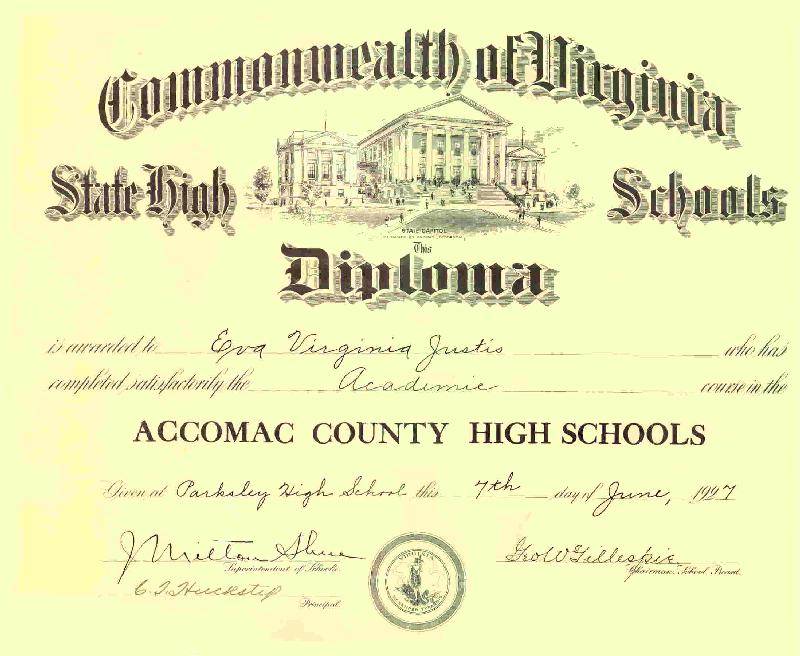 Commonwealth of Virginia
State High Schools
STATE CAPITOL
This
Diploma
is awarded to Eva Virginia Justis who has
completed satisfactorily the Academic course in the
ACCOMAC COUNTY HIGH SCHOOLS
Given at Parksley High School this 7th day of June, 1927
J Milton Shue
Superintendent of Schools.
Geo W Gillespie
Chairman, School Board.
Principal.
VIRGINIA